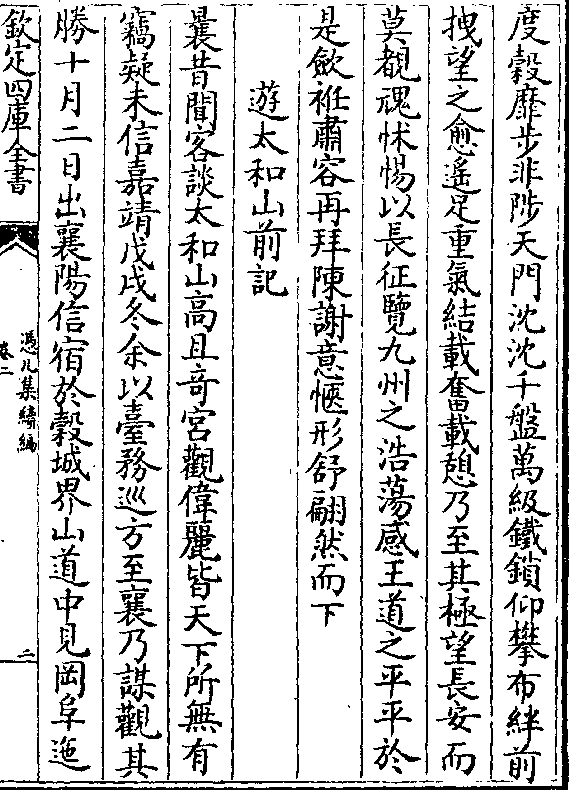 度縠靡步非陟天門沈沈千盤萬級鐵鎖仰攀布絆前
拽望之愈遙足重氣結載奮載憩乃至其極望長安而
莫覩魂怵惕以長征覽九州之浩蕩感王道之平平於
是斂袵肅容再拜陳謝意愜形舒翩然而下
遊太和山前記
曩昔聞客談太和山高且竒宮觀偉麗皆天下所無有
竊疑未信嘉靖戊戌冬余以臺務巡方至襄乃謀觀其
勝十月二日出襄陽信宿於穀城界山道中見岡阜迤
欽定四庫全書
憑几集續編
卷二
二